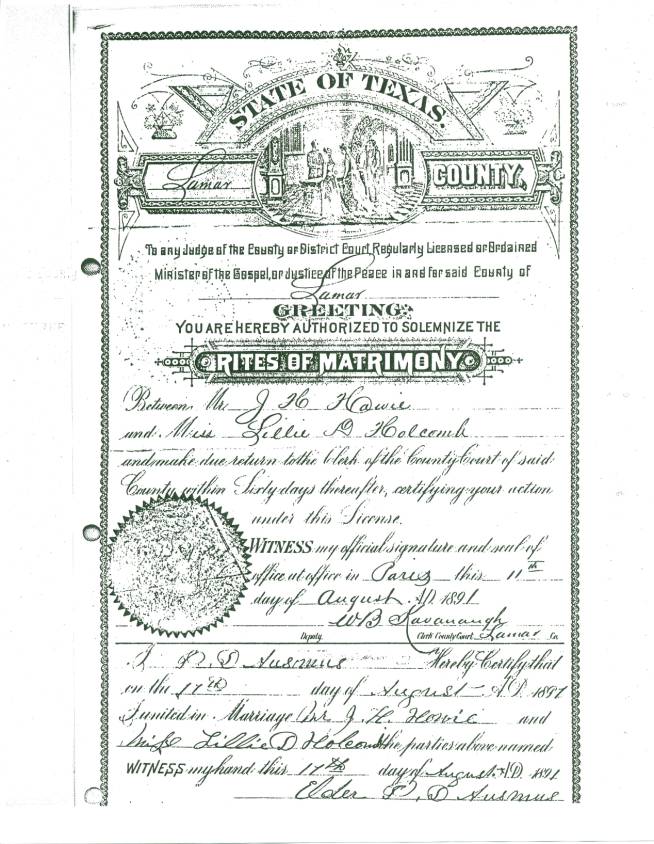 STATE OF TEXAS.
Lamar COUNTY,
To any Judge of the County or District Court, Regularly Licensed or Ordained
Minister of the Gospel, or Justice of the Peace in and for said County of
Lamar
GREETING:
YOU ARE HEREBY AUTHORIZED TO SOLEMNIZE THE
RITES OF MATRIMONY
Between Mr. J H Howie
and Miss Lillie D Holcomb
and make due return to the Clerk of the County Court of said
County within Sixty days thereafter, certifying your action
under this License.
WITNESS my official signature and seal of
office at office in Paris this 11th
day of August A.D. 1891
W B Kavanaugh
Deputy. Clerk County Court, Lamar Co.
I P. D Ausmus Hereby Certify that
on the 17th day of August A.D. 1891
I united in Marriage Mr. J. H. Howie and
Miss Lillie D Holcomb the parties above named
WITNESS my hand this 17th day of August A.D. 1891
Elder P. D Ausmus